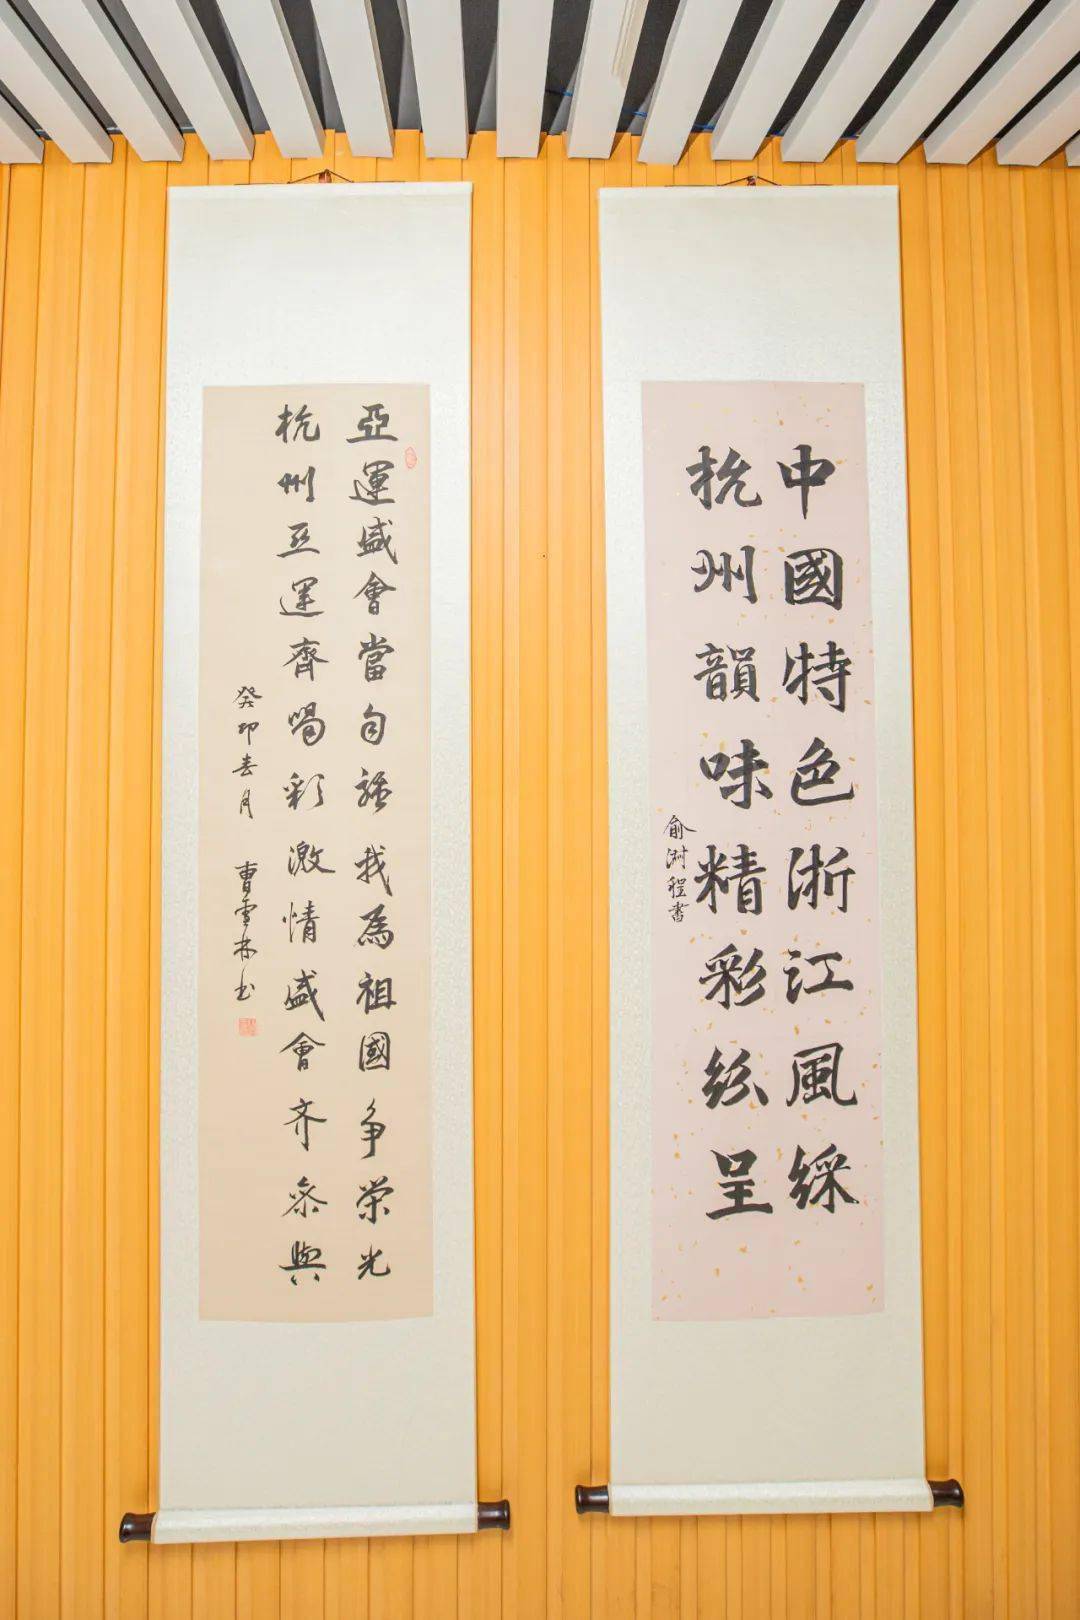 中國特色浙江風綵
杭州韻味精彩紛呈
俞程書
亞運盛會當自強我為祖國争榮光
杭州亚運齊喝彩激情盛會齐參與
癸卯春月 曹林书